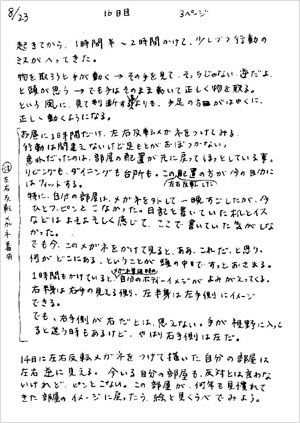 8/23
10日目
3ページ
起きてから、1時間半〜2時間かけて、少しづつ行動の
ミスがへってきた。
物を取ろうと手が動く→その手を見て、そっちじゃない、逆だよ
と頭が思う→でも手はそのまま動いて正しく物を取る。
という風に、見て判断するよりも、手足の方がはやくに、
正しく動くようになる。
お昼に1時間だけ、左右反転メガネをつけてみる。
行動は間違えないけど足もとがおぼつかない。
意外だったのは、部屋の配置が元に戻ってほっとしている事。
リビングも、ダイニングも台所も。この配置の方が今の自分に
はフィットする。
左右反転した
特に、自分の部屋は、メガネを外して一晩すごしたが、今
ひとつピンとこなかった。日記を書いていた机とイス
などはよそよそしく感じて、ここで書いていた気がしな
かった。
でも今、このメガネをかけて見ると、ああ、これだ、と思う。
何がどこにある、ということが頭の中で、すっとおさまる。
1時間もかけていると、自分のボディーイメージがよみがえってくる。
メガネ着用時の
右半身は右手の見える側、左半身は左手側にイメージ
できる。
でも、右手側が右だとは、思えない。手が視野に入っ
ると迷う時もあるけど、やはり右手側は左だ。
左右反転メガネ着用
14日に左右反転メガネをつけて描いた自分の部屋は
左右逆に見える。今いる自分の部屋も、反対とは言わな
いけれど、ピンとこない。この部屋が、何年も見慣れて
きた部屋のイメージに戻ったら、絵と見くらべてみよう。